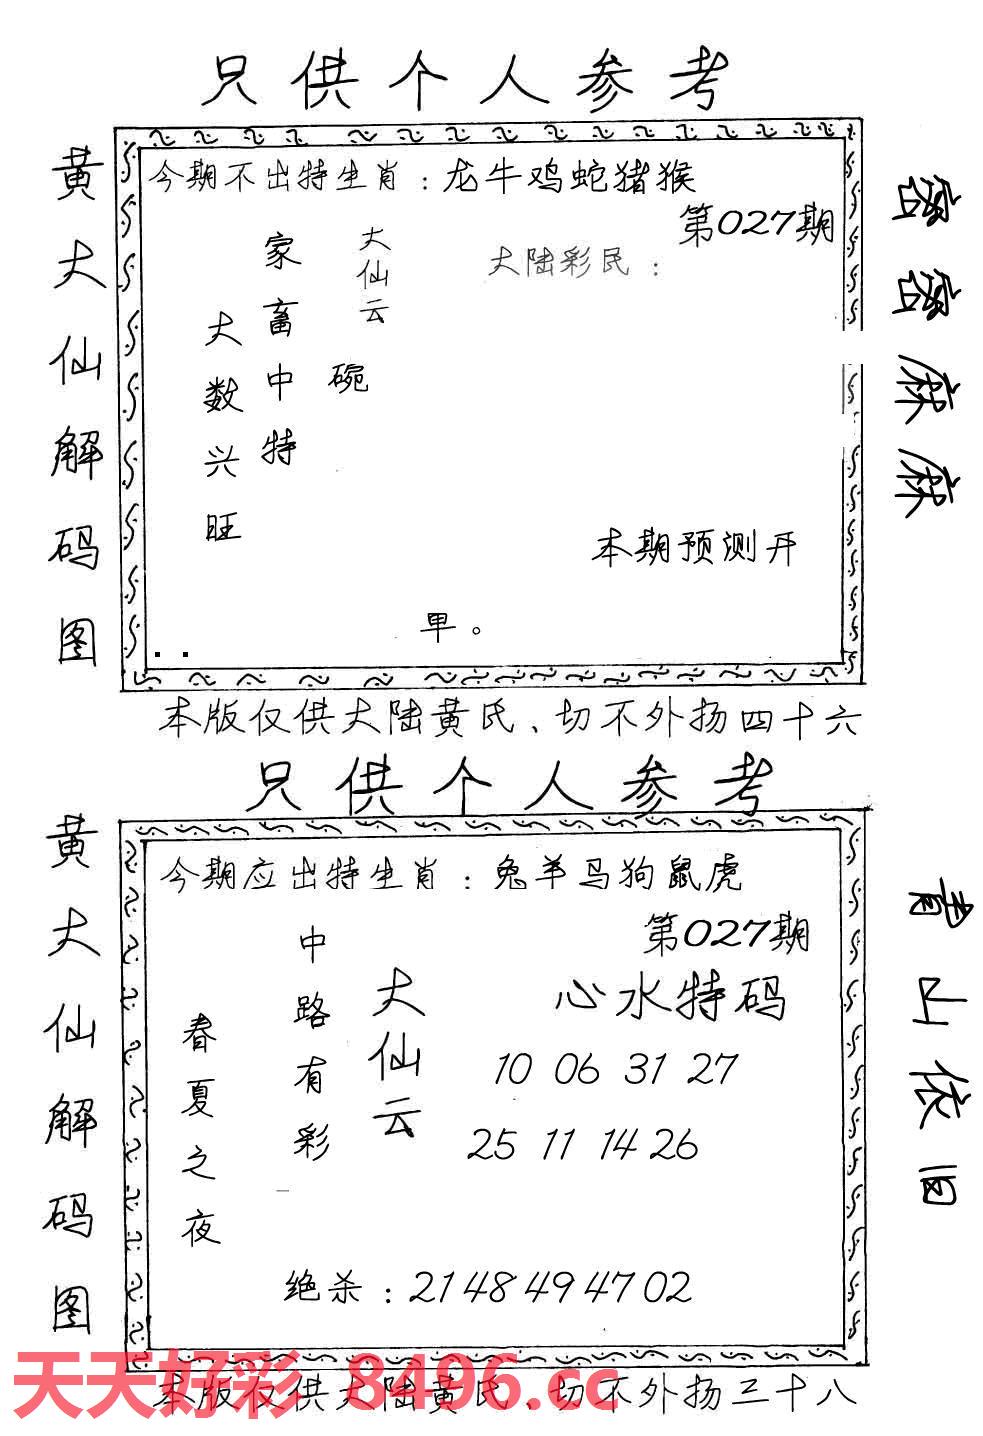 只供个人参考
黄大仙解码图
今期不出特生肖：龙牛鸡蛇猪猴
第027期
大陆彩民：
大仙云
家畜中特
大数兴旺
碗
本期预测开
甲。
密密麻麻
本版仅供大陆黄氏、切不外扬四十六
只供个人参考
黄大仙解码图
今期应出特生肖：兔羊马狗鼠虎
第027期
心水特码
大仙云
中路有彩
春夏之夜
10 06 31 27
25 11 14 26
绝杀：21 48 49 47 02
青山依旧
天天好彩 8496.cc
本版仅供大陆黄氏、切不外扬三十八